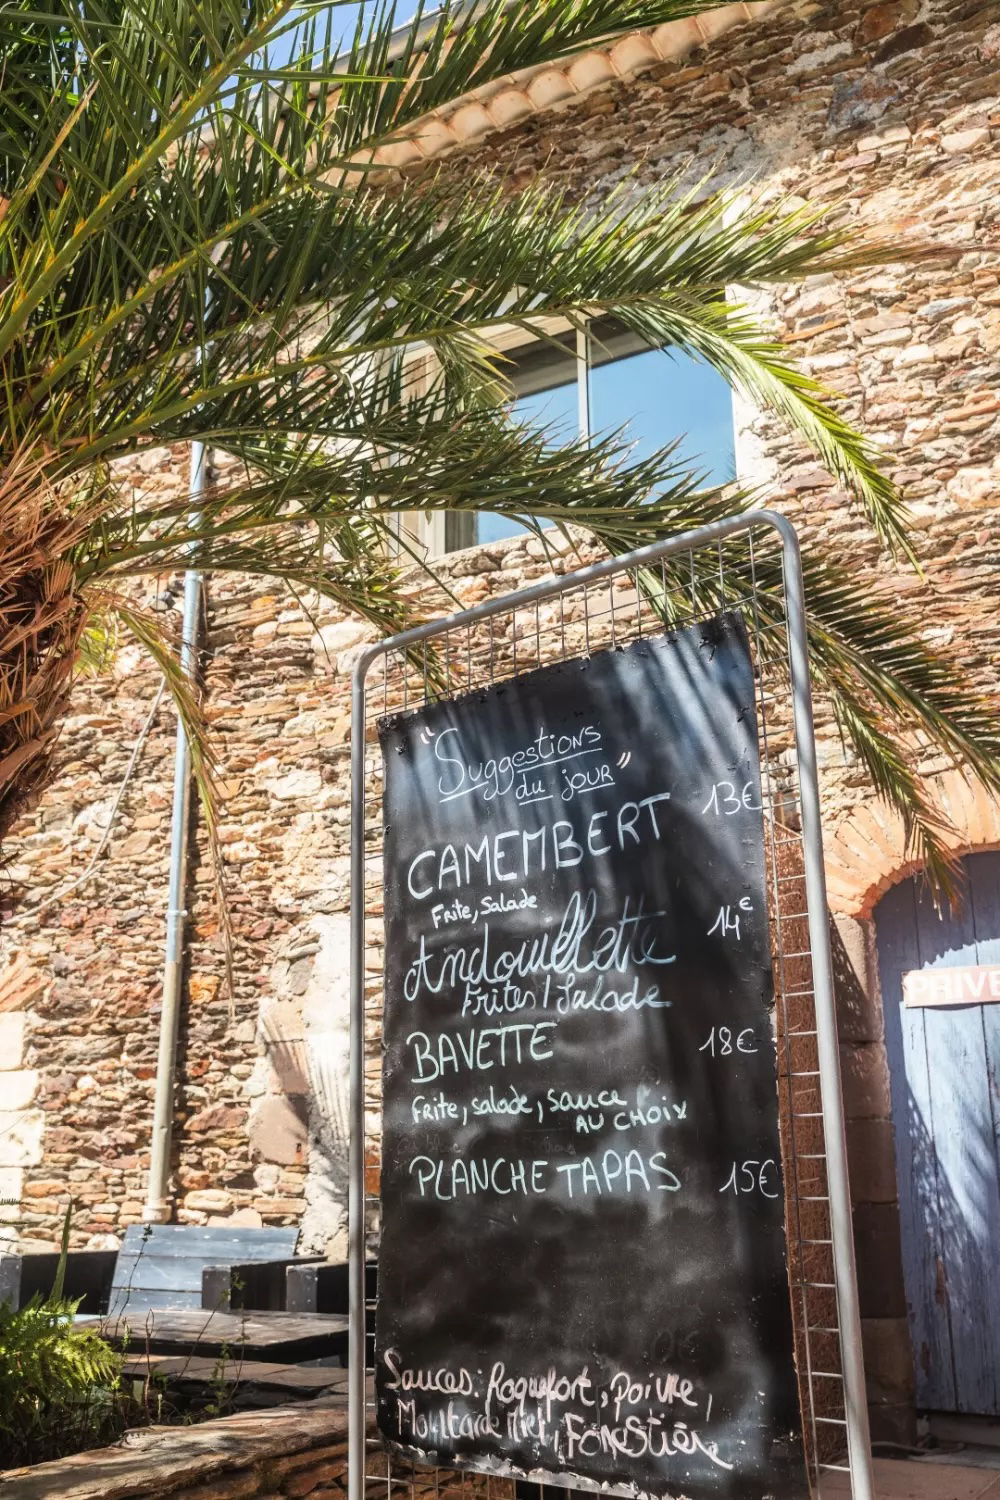 "Suggestions
du jour"
CAMEMBERT 13€
Frite, Salade
Andouillette 14€
Frites / Salade
BAVETTE 18€
Frite, salade, sauce
AU CHOIX
PLANCHE TAPAS 15€
Sauces: Roquefort, Poivre,
Moutarde Miel, Forestière
PRIVE